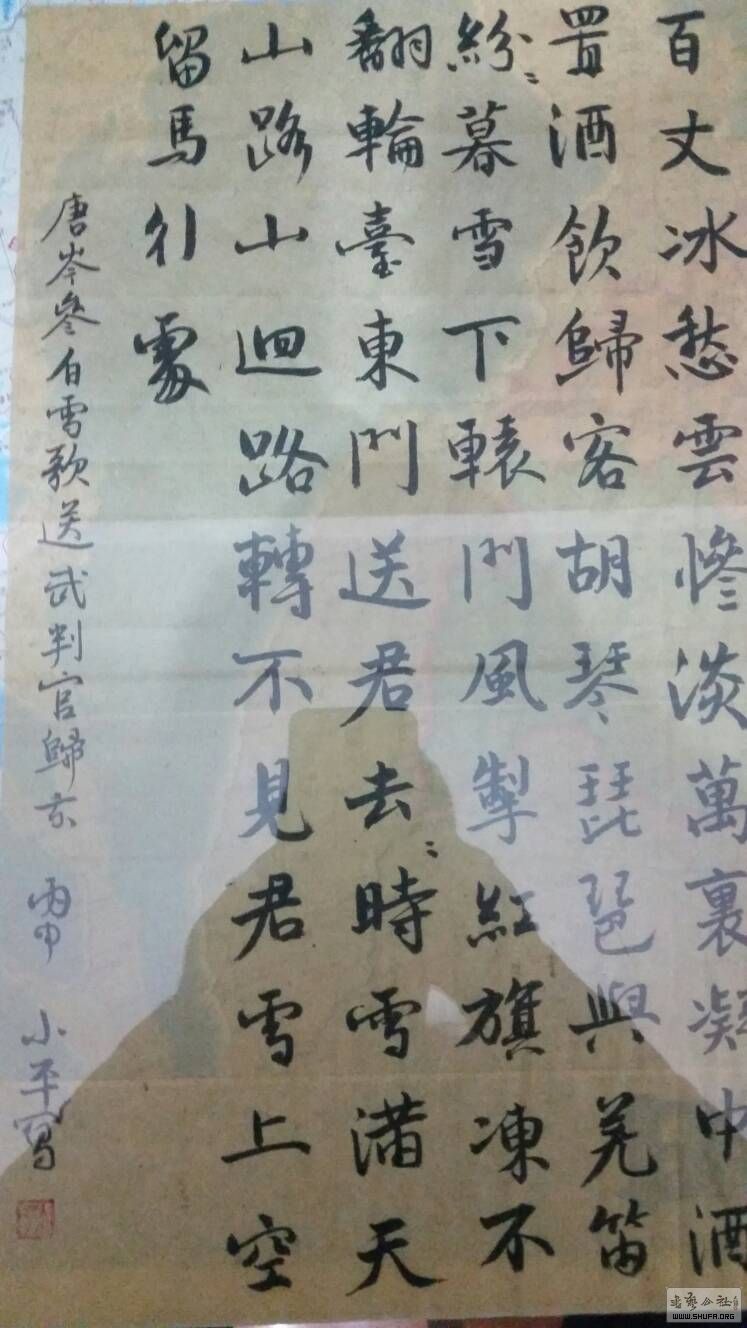 百丈冰愁雲慘淡萬裏凝中酒
置酒飲歸客胡琴琵琶與羌笛
紛〻暮雪下轅門風掣紅旗凍不
翻輪臺東門送君去〻時雪满天
山路山迴路轉不見君雪上空
留馬行處
唐岑參白雪歌送武判官歸京 丙申 小平寫
WWW.SHUFA.ORG